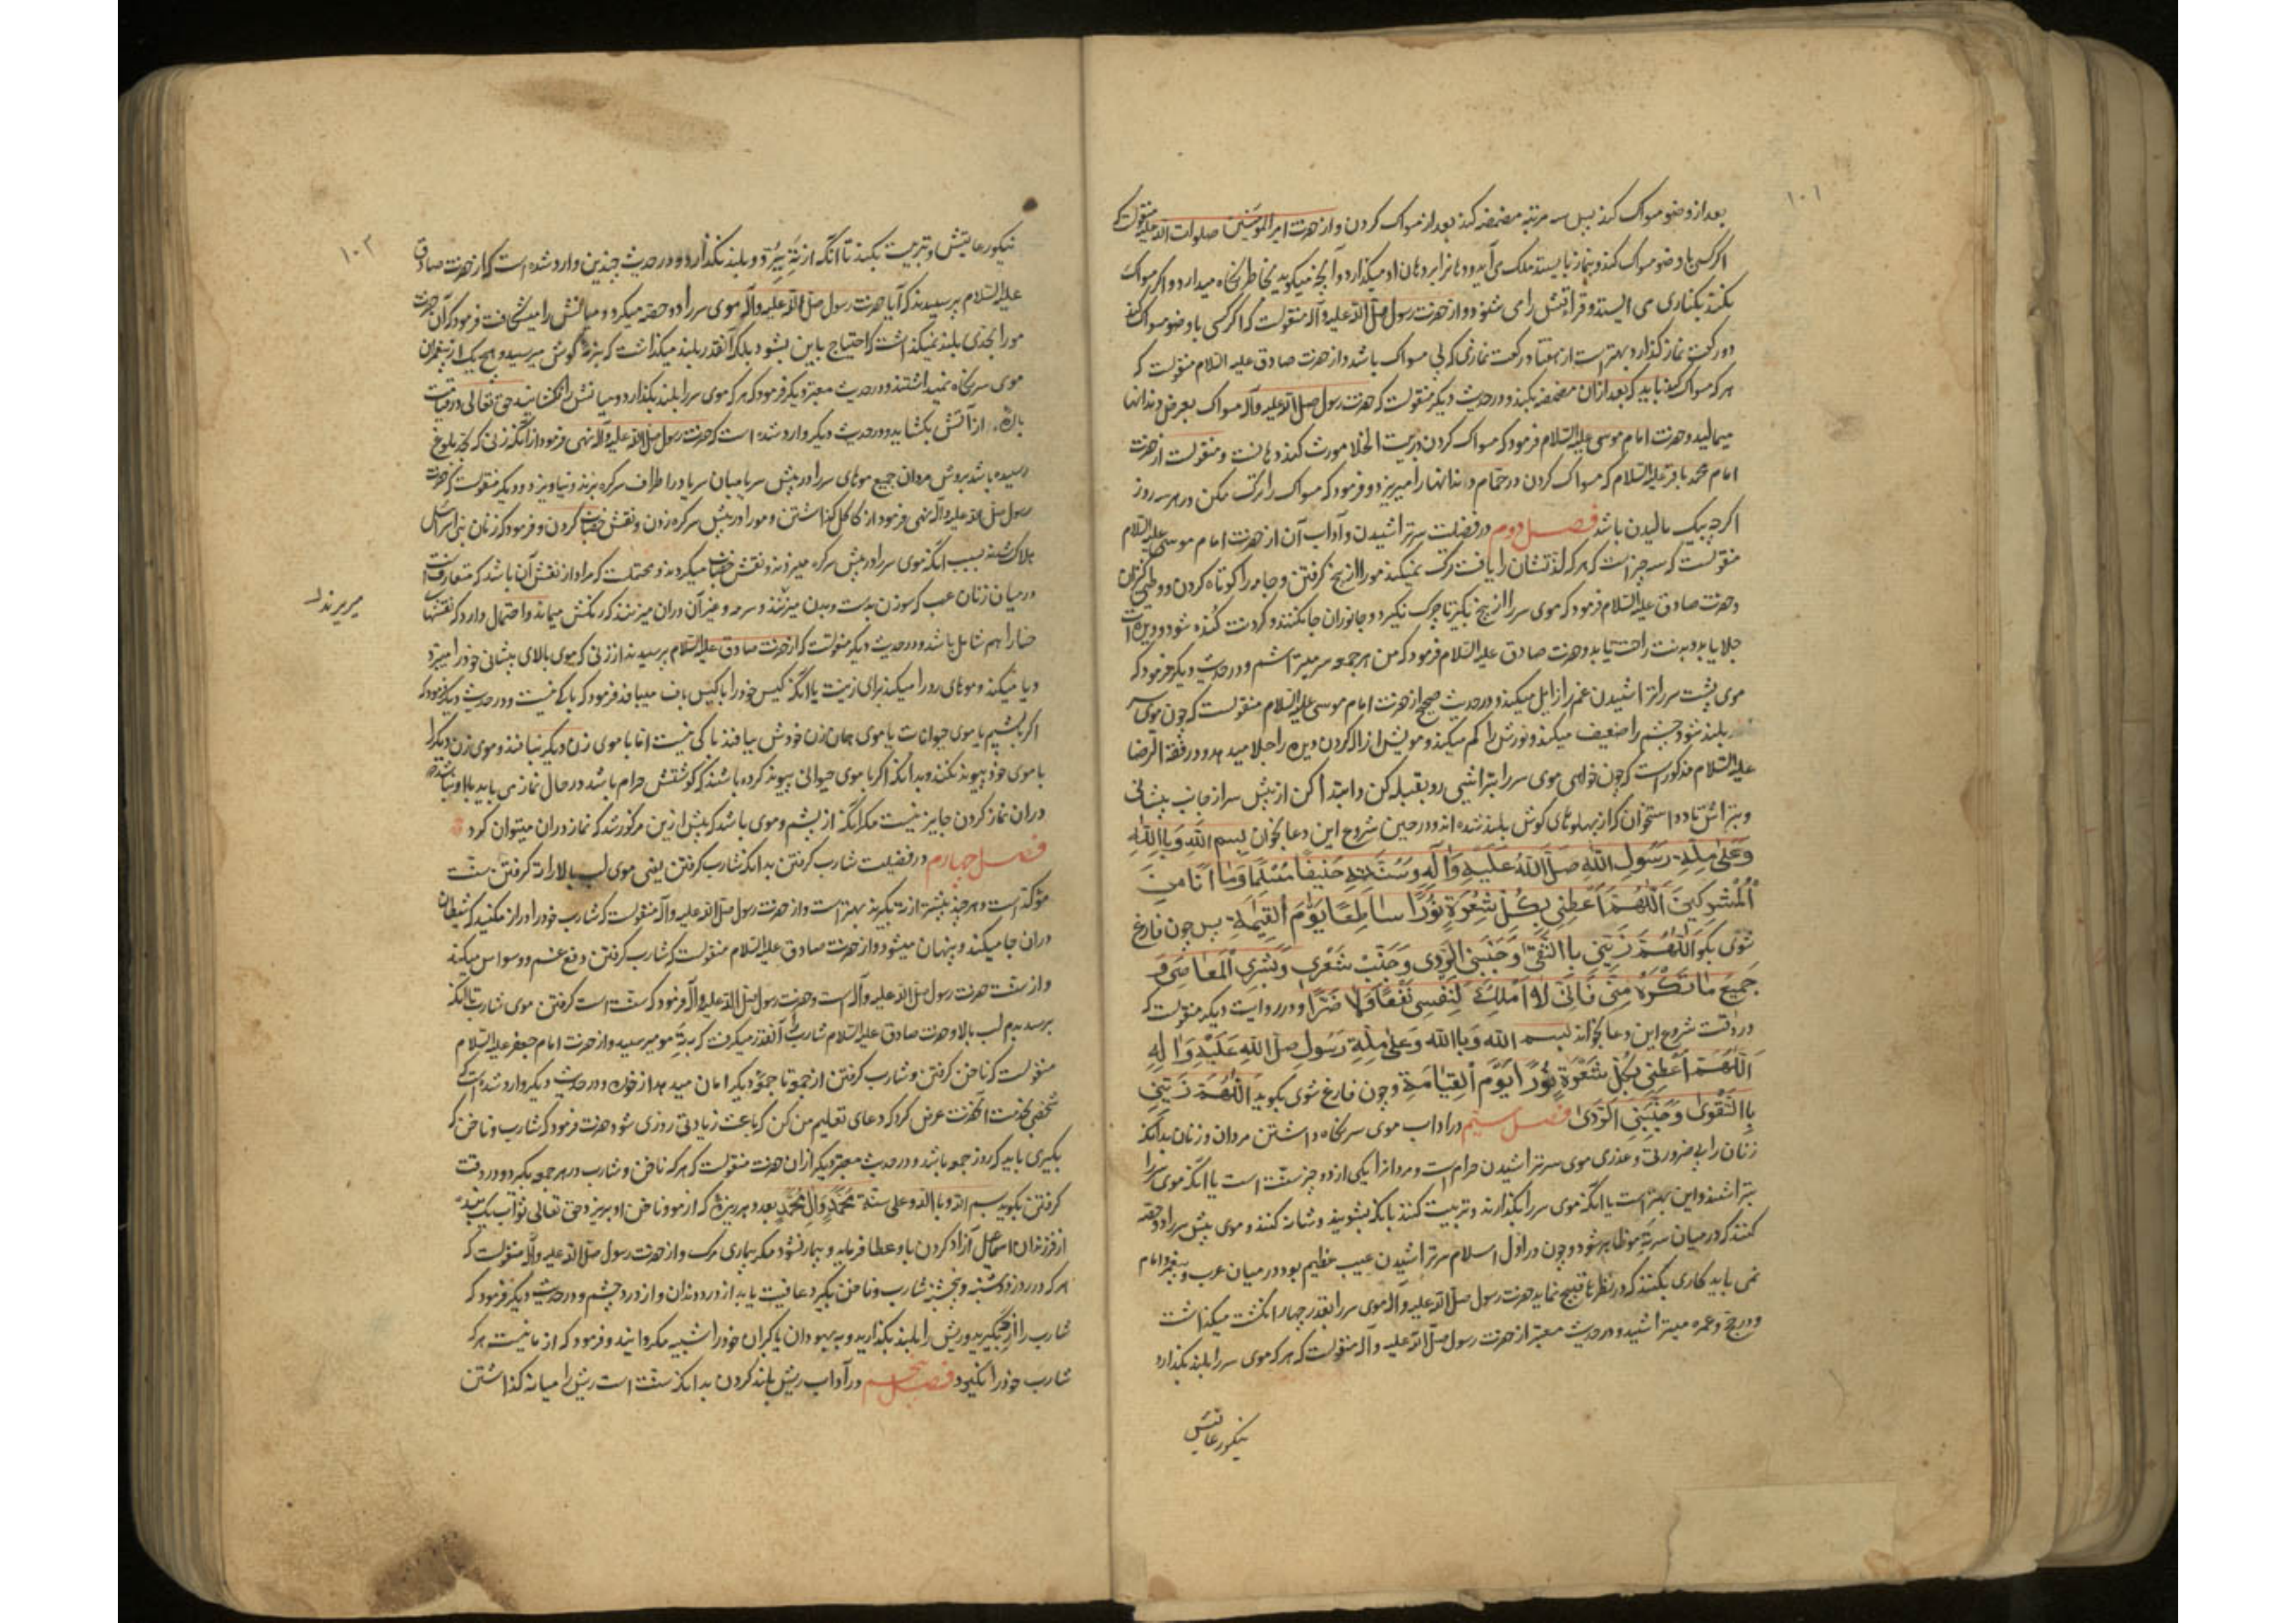 ۱۰۱
بعد از وضو مسواک کند پس سه مرتبه مضمضه کند بعد از مسواک کردن و از حضرت امیر المؤمنین صلوات الله علیه منقولست که
اگر کسی با وضو مسواک کند و بنماز بایستد ملک می آید و دهانرا بر دهان او میگذارد و آنچه میگوید بخاطر نگاه میدارد و اگر مسواک
نکند بکناری می ایستد و قرائتش را می شنود و از حضرت رسول صلی الله علیه و آله منقولست که اگر کسی با وضو مسواک کند
دو رکعت نماز گذارد بهتر است از هفتاد رکعت نمازی که بی مسواک باشد و از حضرت صادق علیه السلام منقولست که
هر که مسواک کند باید که بعد از آن مضمضه بکند و در حدیث دیگر منقولست که حضرت رسول صلی الله علیه و آله مسواک بعرض دندانها
میمالید و حضرت امام موسی علیه السلام فرمود که مسواک کردن در بیت الخلا مورث کند دهانست و منقولست از حضرت
امام محمد باقر علیه السلام که مسواک کردن در حمام دندانها را میریزد و فرمود که مسواک را ترک مکن در هر سه روز
اگر چه بیک مالیدن باشد فصل دوم در فضلت سر تراشیدن و آداب آن از حضرت امام موسی علیه السلام
منقولست که سه چیز است که هر که لذتشان را یافت ترک نمیکند مو را از بیخ گرفتن و جامه را کوتاه کردن و وطی کنیزان
و حضرت صادق علیه السلام فرمود که موی سر را از بیخ بگیر تا چرک نگیرد و جانوران جا نکنند و گردنت کنده شود و دیده ات
جلا یابد و بدنت راحت یابد و حضرت صادق علیه السلام فرمود که من هر جمعه سر میتراشم و در حدیث دیگر فرمود که
موی پشت سر را تراشیدن غم را زایل میکند و در حدیث صحیح از حضرت امام موسی علیه السلام منقولست که چون موی سر
بلند شود چشم را ضعیف میکند و نورش را کم میکند و مویش ازاله کردن دیده را جلا میدهد و در فقه الرضا
علیه السلام مذکور است که چون خواهی موی سر را بتراشی رو بقبله کن و ابتدا کن از پیش سر از جانب پیشانی
و بتراش تا دو استخوان که از پهلوهای گوش بلند شده اند و در حین شروع این دعا بخوان بِسمِ اللهِ وَ بِاللهِ
وَ عَلی مِلَّةِ رَسُولِ اللهِ صَلَّی اللهُ عَلَیهِ وَ آلِهِ وَ سُنَّتِهِ حَنیفاً مُسْلِماً وَ مَا اَنَا مِنَ
الْمُشرِکینَ اَللّهُمَّ اَعْطِنی بِکُلِّ شَعْرَةٍ نُوراً ساطِعاً یَوْمَ الْقِیٰمَةِ پس چون فارغ
شوی بگو اَللّهُمَّ زَیِّنّی بِالتُّقی وَ جَنِّبْنِی الرَّدی وَ جَنِّبْ شَعْری وَ بَشَرِی الْمَعاصِیَ وَ
جَمیعَ مٰا تَکْرَهُ مِنّی فَاِنّی لا اَمْلِکُ لِنَفْسی نَفْعاً وَ لا ضَرّاً و در روایت دیگر منقولست که
در وقت شروع این دعا بخواند بسم الله و بالله وَ عَلی مِلَّةِ رَسُولِ صلی اللهِ عَلَیْهِ وَ الِهِ
اَللّهُمَّ اَعْطِنی بِکُلِّ شَعْرَةٍ نُوراً یَوْمَ الْقِیامَةِ و چون فارغ شوی بگوید اَللّهُمَّ زَیِّنّی
بِالتَّقْوٰی وَ جَنِّبْنِی الرَّدٰی فصل سیم در اداب موی سر نگاه داشتن مردان و زنان بدانکه
زنان را بی ضرورتی و عذری موی سر تراشیدن حرام است و مردانرا یکی از دو چیز سنت است یا آنکه موی سر را
بتراشند و این بهتر است یا آنکه موی سر را بگذارند و تربیت کنند بآنکه بشویند و شانه کنند و موی پیش سر را دو حصه
کنند که در میان سر ته مو ظاهر شود و چون در اول اسلام سر تراشیدن عیب عظیم بود در میان عرب و پیغمبر و امام
نمی باید کاری بکنند که در نظرها قبیح نماید حضرت رسول صلی الله علیه و آله موی سر را بقدر چهار انگشت میگذاشت
و در حج و عمره میتراشید و در حدیث معتبر از حضرت رسول صلی الله علیه و آله منقولست که هر که موی سر را بلند بگذارد
نیکو رعایتش
۱۰۲
نیکو رعایتش و تربیت بکند تا آنکه از ته بِبُرَد و بلند نگذارد و در حدیث چندین وارد شده است که از حضرت صادق
علیه السلام پرسیدند که آیا حضرت رسول صلی الله علیه و آله موی سر را دو حصه میکرد و میانش را میشکافت فرمود که آن حضرت
مو را بحدی بلند نمیگذاشت که احتیاج باین بشود بلکه آنقدر بلند میگذاشت که بنرمه گوش میرسید و هیچ یک از پیغمبران
موی سر نگاه نمیداشتند و در حدیث معتبر دیگر فرمود که هر که موی سر را بلند بگذارد و میانش را نشکافد حق تعالی در قیامت
باره از آتش بگشاید و در حدیث دیگر وارد شده است که حضرت رسول صلی الله علیه و آله نهی فرمود از آنکه زنی که بحد بلوغ
رسیده باشد بروش مردان جمیع موهای سر را در پیش سر یا میان سر یا در اطراف سر گره بزند و نیاویزد و دیگر منقولست که حضرت
رسول صلی الله علیه و آله نهی فرمود از کاکل گذاشتن و مو را در پیش سر گره زدن و نقش خضاب کردن و فرمود که زنان بنی اسرائیل
هلاک شدند بسبب آنکه موی سر را در پیش سر گره میزدند و نقش خضاب میکردند و محتملست که مراد از نقش آن باشد که متعارفست
در میان زنان عرب که سوزن بدست و بدن میزنند و سرمه و غیر آن در آن میریزند که رنگش میماند و احتمال دارد که نقشها
میریزند
حنا را هم شامل باشد و در حدیث دیگر منقولست که از حضرت صادق علیه السلام پرسیدند از زنی که موی بالای پیشانی خود را میبرد
و یا میکند و موهای رو را میکند برای زینت یا آنکه گیس خود را با گیس باف میبافد فرمود که باکی نیست و در حدیث دیگر فرمود که
اگر بپشم یا موی حیوانات یا موی همان زن خودش ببافند باکی نیست اما با موی زن دیگر نبافند و موی زن دیگر را
با موی خود پیوند نکنند و بدانکه اگر با موی حیوانی پیوند کرده باشند که گوشتش حرام باشد در حال نماز می باید با او نباشد که
در آن نماز کردن جایز نیست مگر آنکه از پشم و موی باشد که پیش ازین مذکور شد که نماز در آن میتوان کرد
فصل چهارم در فضیلت شارب گرفتن بدانکه شارب گرفتن یعنی موی لب بالا را ته گرفتن سنت
مؤکد است و هر چند بیشتر از ته بگیرند بهتر است و از حضرت رسول صلی الله علیه و آله منقولست که شارب خود را دراز مکنید که شیطان
در آن جا میکند و پنهان میشود و از حضرت صادق علیه السلام منقولست که شارب گرفتن دفع غم و وسواس میکند
و از سنت حضرت رسول صلی الله علیه و آله است و حضرت رسول صلی الله علیه و آله فرمود که سنت است گرفتن موی شارب تا آنکه
برسد بدم لب بالا و حضرت صادق علیه السلام شارب را آنقدر میگرفت که به ته مو میرسید و از حضرت امام جعفر علیه السلام
منقولست که ناخن گرفتن و شارب گرفتن از جمعه تا جمعه دیگر امان میدهد از خوره و در حدیث دیگر وارد شده است که
شخصی بخدمت آنحضرت عرض کرد که دعای تعلیم من کن که باعث زیادتی روزی شود حضرت فرمود که شارب و ناخن که
بگیری باید که روز جمعه باشد و در حدیث معتبر دیگر از آن حضرت منقولست که هر که ناخن و شارب در هر جمعه بگیرد و در وقت
گرفتن بگوید بسم الله و بالله و علی سنة مُحَمَّدٍ وَ آلِ مُحَمَّدٍ بعدد هر ریزه که از مو و ناخن او بریزد حق تعالی ثواب یک بنده
از فرزندان اسماعیل آزاد کردن باو عطا فرماید و بیمار نشود مگر بیماری مرگ و از حضرت رسول صلی الله علیه و آله منقولست که
هر که در روز دوشنبه و پنجشنبه شارب و ناخن بگیرد عافیت یابد از درد دندان و از درد چشم و در حدیث دیگر فرمود که
شارب را از بیخ بگیرید و ریش را بلند بگذارید و به یهودان یا گبران خود را شبیه مگردانید و فرمود که از ما نیست هر که
شارب خود را نگیرد فصل پنجم در آداب ریش بلند کردن بدانکه سنت است ریش را میانه گذاشتن